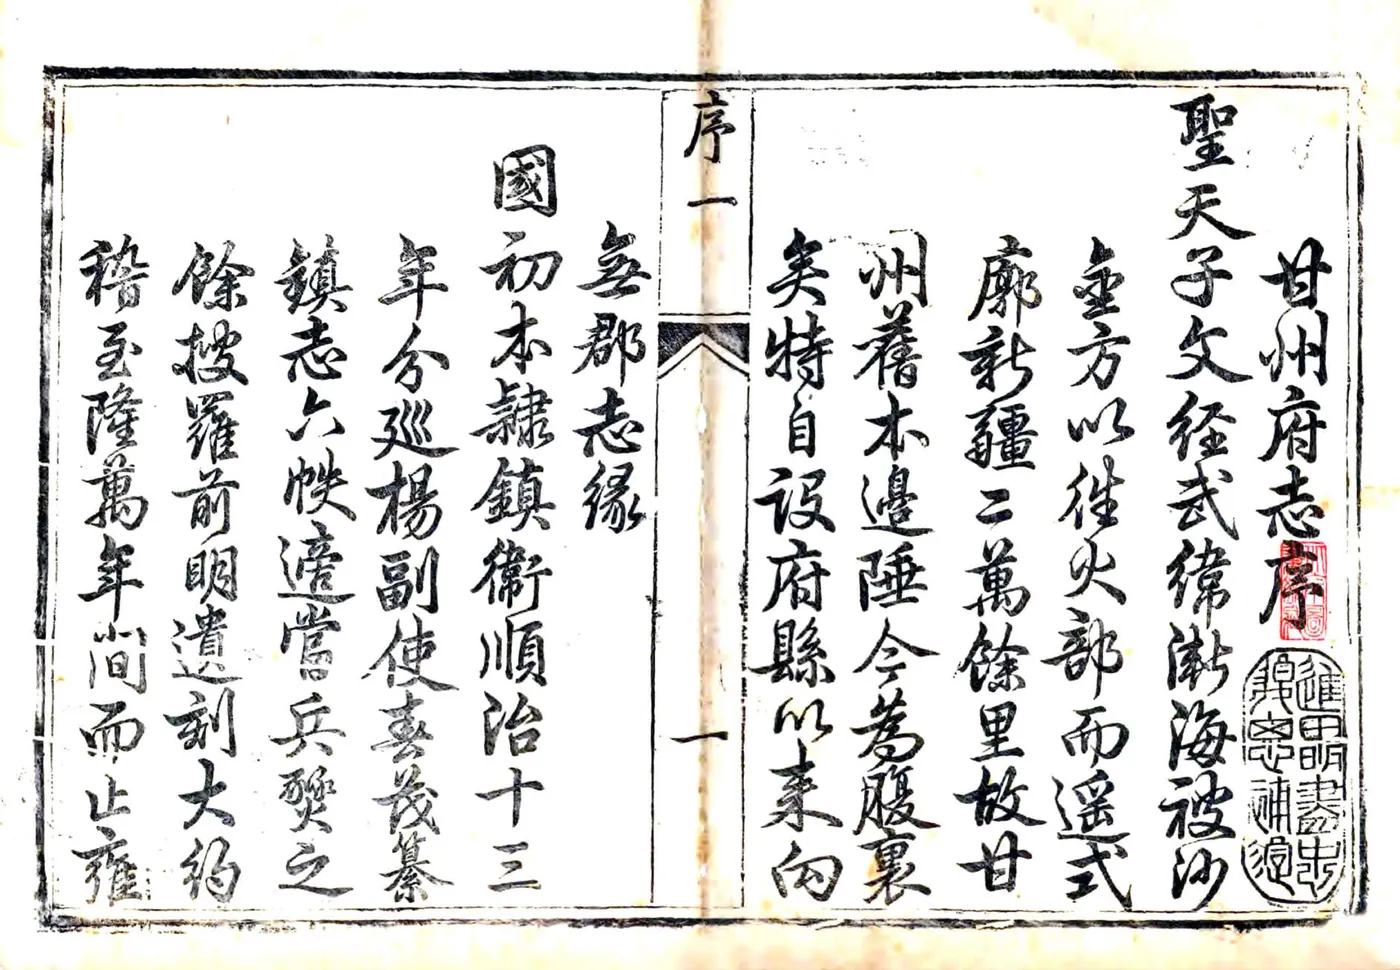 甘州府志序
進思盡忠退思補過
聖天子文經武緯漸海被沙
金方以徃火部而遥式
廓新疆二萬餘里故甘
州舊本邊陲今為腹裏
矣特自設府縣以来向
序一
一
無郡志緣
國初本隷鎮衞順治十三
年分廵楊副使春茂纂
鎮志六帙適當兵燹之
餘搜羅前明遺刻大約
稽至隆萬年間而止雍